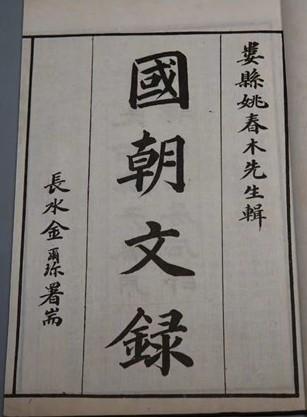 婁縣姚春木先生輯
國朝文録
長水金爾珍署耑